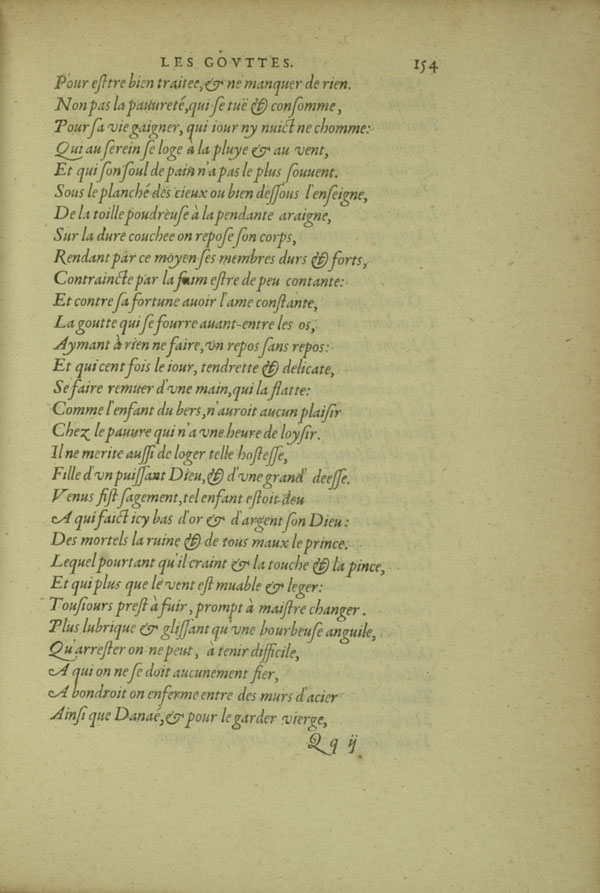 LES GOVTTES. 154
Pour eſtre bien traitee, & ne manquer de rien.
Non pas la pauureté, qui ſe tuë & conſomme,
Pour ſa vie gaigner, qui iour ny nuict ne chomme:
Qui au ſerein ſe loge à la pluye & au vent,
Et qui ſon ſoul de pain n'a pas le plus ſouuent.
Sous le planché des cieux ou bien deſſous l'enſeigne,
De la toille poudreuſe à la pendante araigne,
Sur la dure couchee on repoſe ſon corps,
Rendant par ce moyen ſes membres durs & forts,
Contraincte par la faim eſtre de peu contante:
Et contre ſa fortune auoir l'ame conſtante,
La goutte qui ſe fourre auant-entre les os,
Aymant à rien ne faire, vn repos ſans repos:
Et qui cent fois le iour, tendrette & delicate,
Se faire remuer d'vne main, qui la flatte:
Comme l'enfant du bers, n'auroit aucun plaiſir
Chez le pauure qui n'a vne heure de loyſir.
Il ne merite auſſi de loger telle hoſteſſe,
Fille d'vn puiſſant Dieu, & d'vne grand' deeſſe.
Venus fiſt ſagement, tel enfant eſtoit deu
A qui faict icy bas d'or & d'argent ſon Dieu:
Des mortels la ruine & de tous maux le prince.
Lequel pourtant qu'il craint & la touche & la pince,
Et qui plus que le vent eſt muable & leger:
Touſiours preſt à fuir, prompt à maiſtre changer.
Plus lubrique & gliſſant qu'vne bourbeuſe anguile,
Qu'arreſter on ne peut, à tenir difficile,
A qui on ne ſe doit aucunement fier,
A bondroit on enferme entre des murs d'acier
Ainſi que Danaë, & pour le garder vierge,
Qq ij